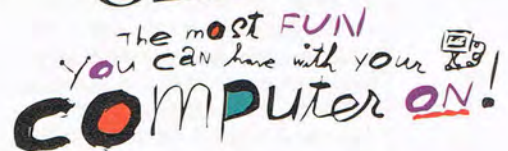 The most FUN
you can have with your
computer ON!